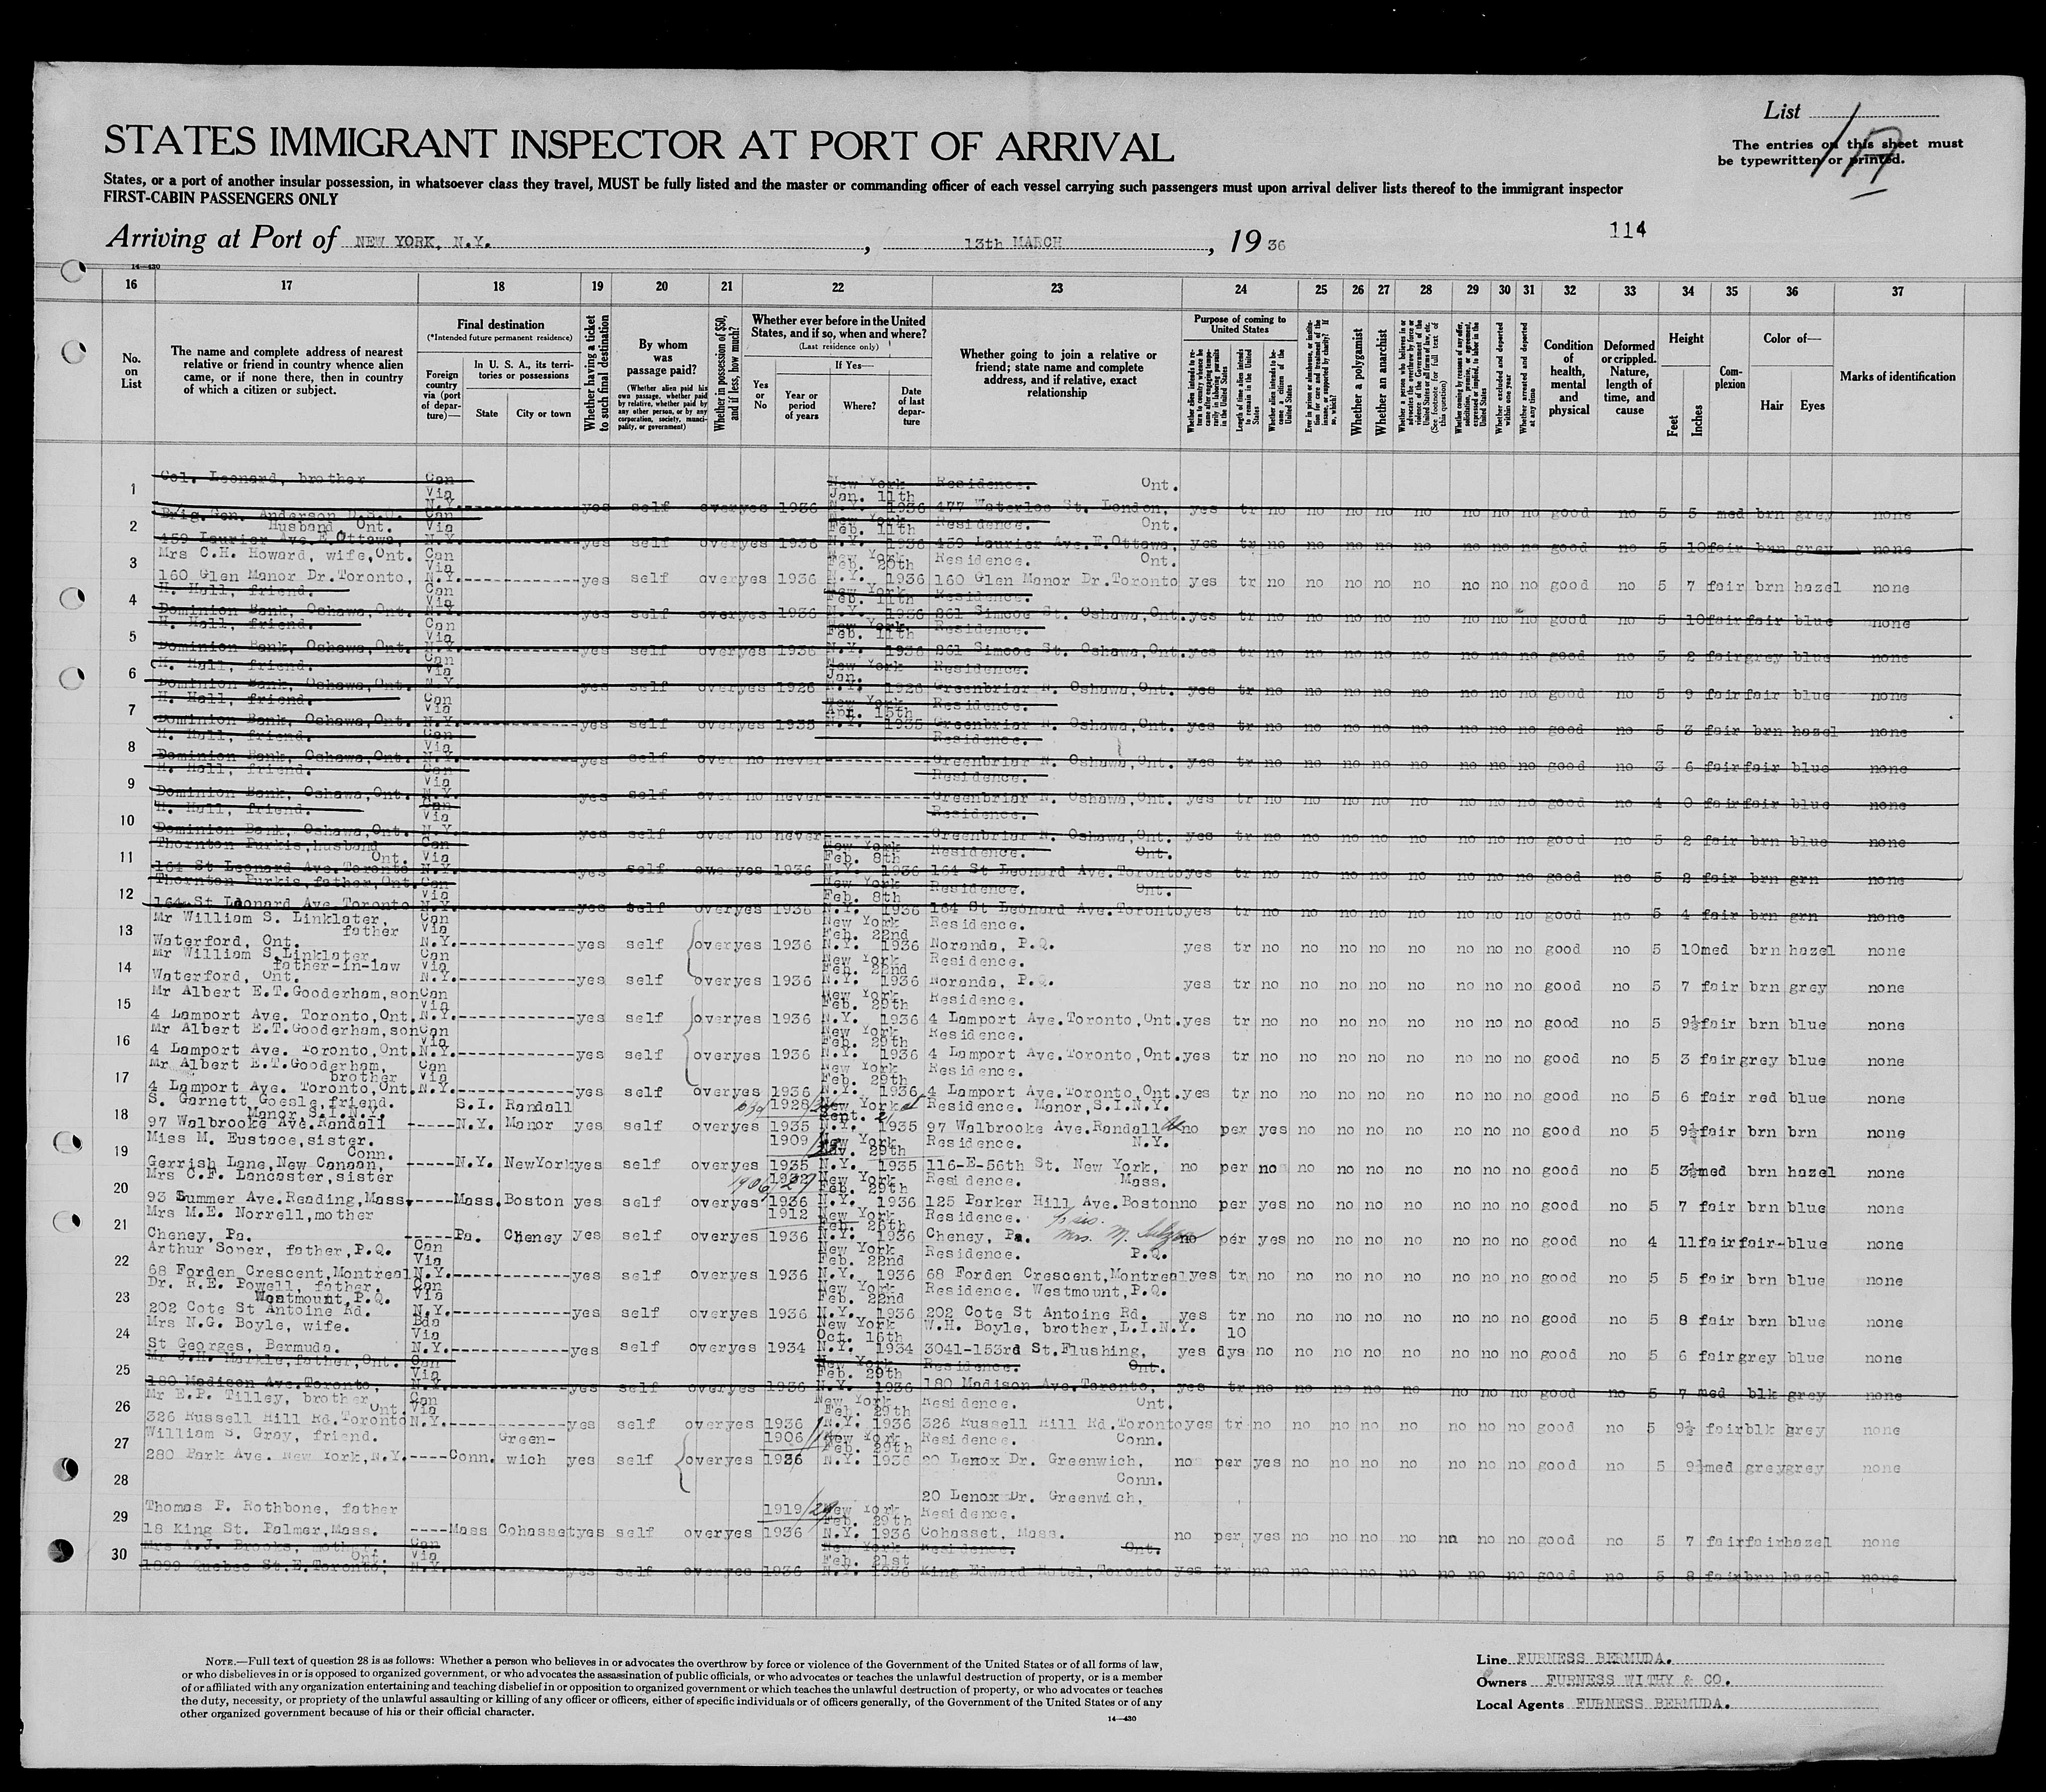 List
The entries on this sheet must
be typewritten or printed.
STATES IMMIGRANT INSPECTOR AT PORT OF ARRIVAL
States, or a port of another insular possession, in whatsoever class they travel, MUST be fully listed and the master or commanding officer of each vessel carrying such passengers must upon arrival deliver lists thereof to the immigrant inspector
FIRST-CABIN PASSENGERS ONLY
Arriving at Port of NEW YORK, N.Y. , 13th MARCH , 19 36
114
14—430
16 17 18 19 20 21 22 23 24 25 26 27 28 29 30 31 32 33 34 35 36 37
No. on List
The name and complete address of nearest relative or friend in country whence alien came, or if none there, then in country of which a citizen or subject.
Final destination
(*Intended future permanent residence)
Foreign country via (port of departure)—
In U. S. A., its territories or possessions
State City or town
Whether having a ticket to such final destination
By whom was passage paid?
(Whether alien paid his own passage, whether paid by relative, whether paid by any other person, or by any corporation, society, municipality, or government)
Whether in possession of $50, and if less, how much?
Whether ever before in the United States, and if so, when and where?
(Last residence only)
If Yes—
Yes or No
Year or period of years
Where?
Date of last departure
Whether going to join a relative or friend; state name and complete address, and if relative, exact relationship
Purpose of coming to United States
Length of time alien intends to remain in the United States
Whether alien intends to become a citizen of the United States
Whether a polygamist
Whether an anarchist
Whether excluded and deported within one year
Whether arrested and deported at any time
Condition of health, mental and physical
Deformed or crippled. Nature, length of time, and cause
Height
Feet Inches
Complexion
Color of—
Hair Eyes
Marks of identification
1 Col. Leonard, brother Can Via N.Y. yes self over yes 1936 New York Jan. 11th N.Y. 1936 Residence. Ont. 477 Waterloo St. London, yes tr no no no no no no no no good no 5 5 med brn grey none
2 Brig.Gen. Anderson D.S.O. Husband, Ont. 459 Laurier Ave.E.Ottawa, Can Via N.Y. yes self over yes 1936 New York Feb. 11th N.Y. 1936 Residence. Ont. 459 Laurier Ave.E.Ottawa, yes tr no no no no no no no no good no 5 10 fair brn grey none
3 Mrs C.H. Howard, wife,Ont. 160 Glen Manor Dr.Toronto, Can Via N.Y. yes self over yes 1936 New York Feb. 20th N.Y. 1936 Residence. Ont. 160 Glen Manor Dr.Toronto yes tr no no no no no no no no good no 5 7 fair brn hazel none
4 H. Hall, friend. Dominion Bank, Oshawa,Ont. Can Via N.Y. yes self over yes 1936 New York Feb. 11th N.Y. 1936 Residence. 861 Simcoe St. Oshawa,Ont. yes tr no no no no no no no no good no 5 10 fair fair blue none
5 H. Hall, friend. Dominion Bank, Oshawa,Ont. Can Via N.Y. yes self over yes 1936 New York Feb. 11th N.Y. 1936 Residence. 861 Simcoe St. Oshawa,Ont. yes tr no no no no no no no no good no 5 2 fair grey blue none
6 H. Hall, friend. Dominion Bank, Oshawa,Ont. Can Via N.Y. yes self over yes 1926 New York Jan. N.Y. 1926 Residence. Greenbriar N. Oshawa,Ont. yes tr no no no no no no no no good no 5 9 fair fair blue none
7 H. Hall, friend. Dominion Bank, Oshawa,Ont. Can Via N.Y. yes self over yes 1935 New York Apr. 15th N.Y. 1935 Residence. Greenbriar N. Oshawa,Ont. yes tr no no no no no no no no good no 5 3 fair brn hazel none
8 H. Hall, friend. Dominion Bank, Oshawa,Ont. Can Via N.Y. yes self over no never Residence. Greenbriar N. Oshawa,Ont. yes tr no no no no no no no no good no 3 6 fair fair blue none
9 H. Hall, friend. Dominion Bank, Oshawa,Ont. Can Via N.Y. yes self over no never Residence. Greenbriar N. Oshawa,Ont. yes tr no no no no no no no no good no 4 0 fair fair blue none
10 H. Hall, friend. Dominion Bank, Oshawa,Ont. Can Via N.Y. yes self over no never Residence. Greenbriar N. Oshawa,Ont. yes tr no no no no no no no no good no 5 2 fair brn blue none
11 Thornton Purkis,husband Ont. 164 St Leonard Ave.Toronto Can Via N.Y. yes self over yes 1936 New York Feb. 8th N.Y. 1936 Residence. Ont. 164 St Leonard Ave.Toronto yes tr no no no no no no no no good no 5 2 fair brn grn none
12 Thornton Purkis,father,Ont. 164 St Leonard Ave.Toronto Can Via N.Y. yes self over yes 1936 New York Feb. 8th N.Y. 1936 Residence. Ont. 164 St Leonard Ave.Toronto yes tr no no no no no no no no good no 5 4 fair brn grn none
13 Mr William S. Linklater, father Waterford, Ont. Can Via N.Y. yes self over yes 1936 New York Feb. 22nd N.Y. 1936 Residence. Noranda, P.Q. yes tr no no no no no no no no good no 5 10 med brn hazel none
14 Mr William S.Linklater, father-in-law Waterford, Ont. Can Via N.Y. yes self over yes 1936 New York Feb. 22nd N.Y. 1936 Residence. Noranda, P.Q. yes tr no no no no no no no no good no 5 7 fair brn grey none
15 Mr Albert E.T.Gooderham,son 4 Lamport Ave. Toronto,Ont. Can Via N.Y. yes self over yes 1936 New York Feb. 29th N.Y. 1936 Residence. 4 Lamport Ave.Toronto,Ont. yes tr no no no no no no no no good no 5 9½ fair brn blue none
16 Mr Albert E.T.Gooderham,son 4 Lamport Ave. Toronto,Ont. Can Via N.Y. yes self over yes 1936 New York Feb. 29th N.Y. 1936 Residence. 4 Lamport Ave.Toronto,Ont. yes tr no no no no no no no no good no 5 3 fair grey blue none
17 Mr Albert E.T.Gooderham, brother 4 Lamport Ave. Toronto,Ont. Can Via N.Y. yes self over yes 1936 New York Feb. 29th N.Y. 1936 Residence. 4 Lamport Ave.Toronto,Ont. yes tr no no no no no no no no good no 5 6 fair red blue none
18 S. Garnett Goesle,friend. Manor,S.I.N.Y. 97 Walbrooke Ave.Randall S.I. N.Y. Randall Manor yes self over yes 1928 1935 New York N.Y. 1935 Residence. Manor,S.I.N.Y. 97 Walbrooke Ave.Randall no per yes no no no no no no no good no 5 9½ fair brn brn none
19 Miss M. Eustace,sister. Conn. Gerrish Lane,New Canaan, N.Y. NewYork yes self over yes 1909 1935 New York Nov. 29th N.Y. 1935 Residence. N.Y. 116-E-56th St. New York, no per no no no no no no no no good no 5 3½ med brn hazel none
20 Mrs C.F. Lancaster,sister 93 Summer Ave.Reading,Mass. Mass. Boston yes self over yes 1936 New York Feb. 29th N.Y. 1936 Residence. Mass. 125 Parker Hill Ave.Boston no per yes no no no no no no no good no 5 7 fair brn blue none
21 Mrs M.E. Norrell,mother Cheney, Pa. Pa. Cheney yes self over yes 1912 1936 New York Feb. 26th N.Y. 1936 Residence. Cheney, Pa. Mrs. M. no per yes no no no no no no no good no 4 11 fair fair blue none
22 Arthur Soper, father,P.Q. 68 Forden Crescent,Montreal Can Via N.Y. yes self over yes 1936 New York Feb. 22nd N.Y. 1936 Residence. P.Q. 68 Forden Crescent,Montreal yes tr no no no no no no no no good no 5 5 fair brn blue none
23 Dr. R.E. Powell, father, Westmount,P.Q. 202 Cote St Antoine Rd. Can Via N.Y. yes self over yes 1936 New York Feb. 22nd N.Y. 1936 Residence. Westmount,P.Q. 202 Cote St Antoine Rd. yes tr no no no no no no no no good no 5 8 fair brn blue none
24 Mrs N.G. Boyle, wife. St Georges, Bermuda. Bda Via N.Y. yes self over yes 1934 New York Oct. 16th N.Y. 1934 W.H. Boyle, brother,L.I.N.Y. 3041-153rd St.Flushing, yes 10 dys no no no no no no no no good no 5 6 fair grey blue none
25 Mr J.H. Markle,father,Ont. 180 Madison Ave.Toronto, Can Via N.Y. yes self over yes 1936 New York Feb. 29th N.Y. 1936 Residence. Ont. 180 Madison Ave.Toronto, yes tr no no no no no no no no good no 5 7 med blk grey none
26 Mr E.P. Tilley, brother Ont. 326 Russell Hill Rd.Toronto Can Via N.Y. yes self over yes 1936 New York Feb. 29th N.Y. 1936 Residence. Ont. 326 Russell Hill Rd.Toronto yes tr no no no no no no no no good no 5 9½ fair blk grey none
27 William S. Gray, friend. 280 Park Ave. New York,N.Y. Conn. Green- wich yes self over yes 1906 1936 New York Feb. 29th N.Y. 1936 Residence. Conn. 20 Lenox Dr. Greenwich, no per yes no no no no no no no good no 5 9½ med grey grey none
28 Conn. 20 Lenox Dr. Greenwich,
29 Thomas P. Rothbone, father 18 King St. Palmer,Mass. Mass Cohasset yes self over yes 1919 1936 New York Feb. 29th N.Y. 1936 Residence. Cohasset, Mass. no per yes no no no no no no no good no 5 7 fair fair hazel none
30 Mrs A.J. Brooks, mother. Ont. 1899 Quebec St.E.Toronto, Can Via N.Y. yes self over yes 1936 New York Feb. 21st N.Y. 1936 Residence. Ont. King Edward Hotel,Toronto yes tr no no no no no no no no good no 5 8 fair brn hazel none
NOTE.—Full text of question 28 is as follows: Whether a person who believes in or advocates the overthrow by force or violence of the Government of the United States or of all forms of law,
or who disbelieves in or is opposed to organized government, or who advocates the assassination of public officials, or who advocates or teaches the unlawful destruction of property, or is a member
of or affiliated with any organization entertaining and teaching disbelief in or opposition to organized government or which teaches the unlawful destruction of property, or who advocates or teaches
the duty, necessity, or propriety of the unlawful assaulting or killing of any officer or officers, either of specific individuals or of officers generally, of the Government of the United States or of any
other organized government because of his or their official character.
14—430
Line FURNESS BERMUDA.
Owners FURNESS WITHY & CO.
Local Agents FURNESS BERMUDA.